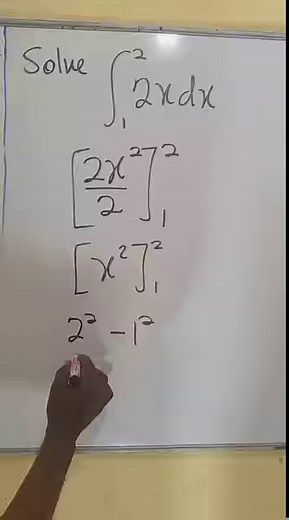 Solve ∫₁² 2x dx
[2x²/2]₁²
[x²]₁²
2² - 1²